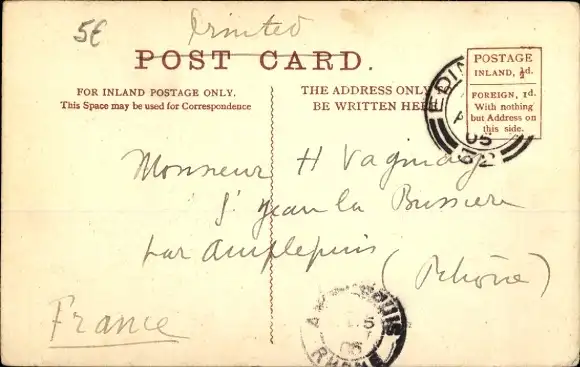 5€ Printed
POST CARD.
FOR INLAND POSTAGE ONLY.
This Space may be used for Correspondence
THE ADDRESS ONLY
BE WRITTEN HERE
POSTAGE
INLAND, ½d.
FOREIGN, 1d.
With nothing
but Address on
this side.
EDIN
05
32
Monsieur H Vaginay
St Jean la Bussiere
par Amplepuis
(Rhône)
France
A PUIS
5
05
RHONE